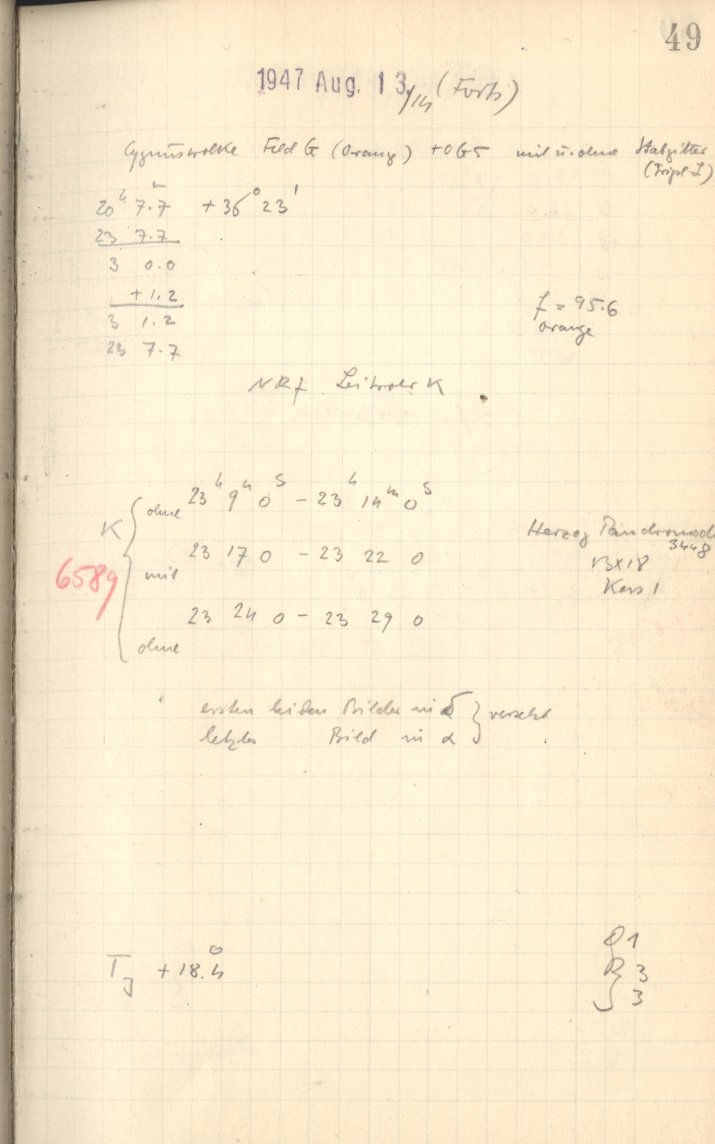 49
1947 Aug. 13/14 (Forts)
Cygnuswolke Feld G (Orange) + OG5 mit u. ohne Stabgitter
(Tripl. I)
20ʰ 7.ᵐ7 + 36° 23'
23 7.7
3 0.0
+ 1.2
3 1.2
23 7.7
f = 95.6
orange
Leitrohr K
K
ohne 23ʰ 9ᵐ 0ˢ – 23ʰ 14ᵐ 0ˢ
mit 23 17 0 – 23 22 0
ohne 23 24 0 – 23 29 0
6589
Herzog
3448
13x18
ersten beiden Bilder in δ } versetzt
letztes Bild in α
+ 18.°4
1
3
3